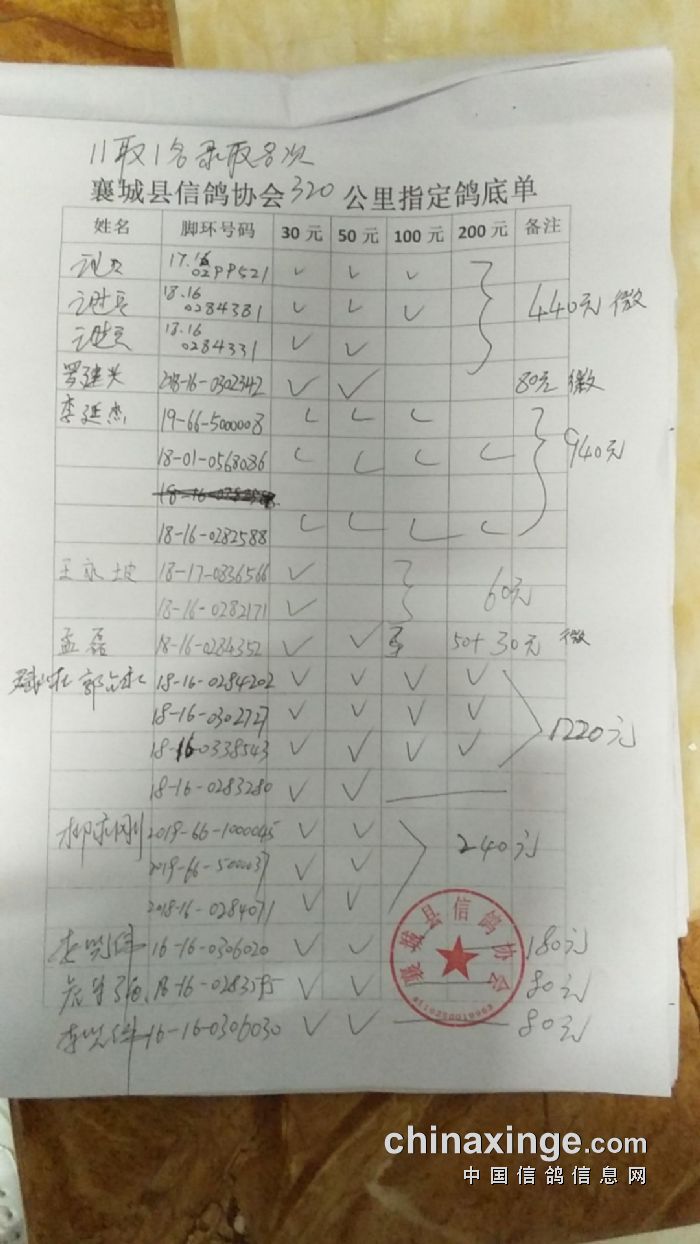 11取1名录取名次
襄城县信鸽协会320公里指定鸽底单
姓名 脚环号码 30元 50元 100元 200元 备注
17.16 0299521 ✓ ✓ ✓
18.16 0284381 ✓ ✓ ✓ 440元 微
18.16 0284331 ✓ ✓
罗建兴 2018-16-0302342 ✓ ✓ 80元 微
李延杰 19-66-5000008 ✓ ✓ ✓
18-01-0568086 ✓ ✓ ✓ ✓ 940元
18-16-0282588 ✓ ✓ ✓ ✓
王永坡 18-17-0836566 ✓
18-16-0282171 ✓ 60元
孟磊 18-16-0284352 ✓ ✓ 50+30元 微
18-16-0284202 ✓ ✓ ✓ ✓
18-16-0302727 ✓ ✓ ✓ ✓
18-16-0338543 ✓ ✓ ✓ ✓ 1220元
18-16-0283280 ✓ ✓
2019-66-1000045 ✓ ✓
2019-66-500037 ✓ ✓ 240元
2018-16-0284071 ✓ ✓
16-16-0306020 ✓ ✓ 180元
18-16-0283595 ✓ ✓ 80元
16-16-0306030 ✓ ✓ 80元
襄城县信鸽协会
chinaxinge.com
中国信鸽信息网